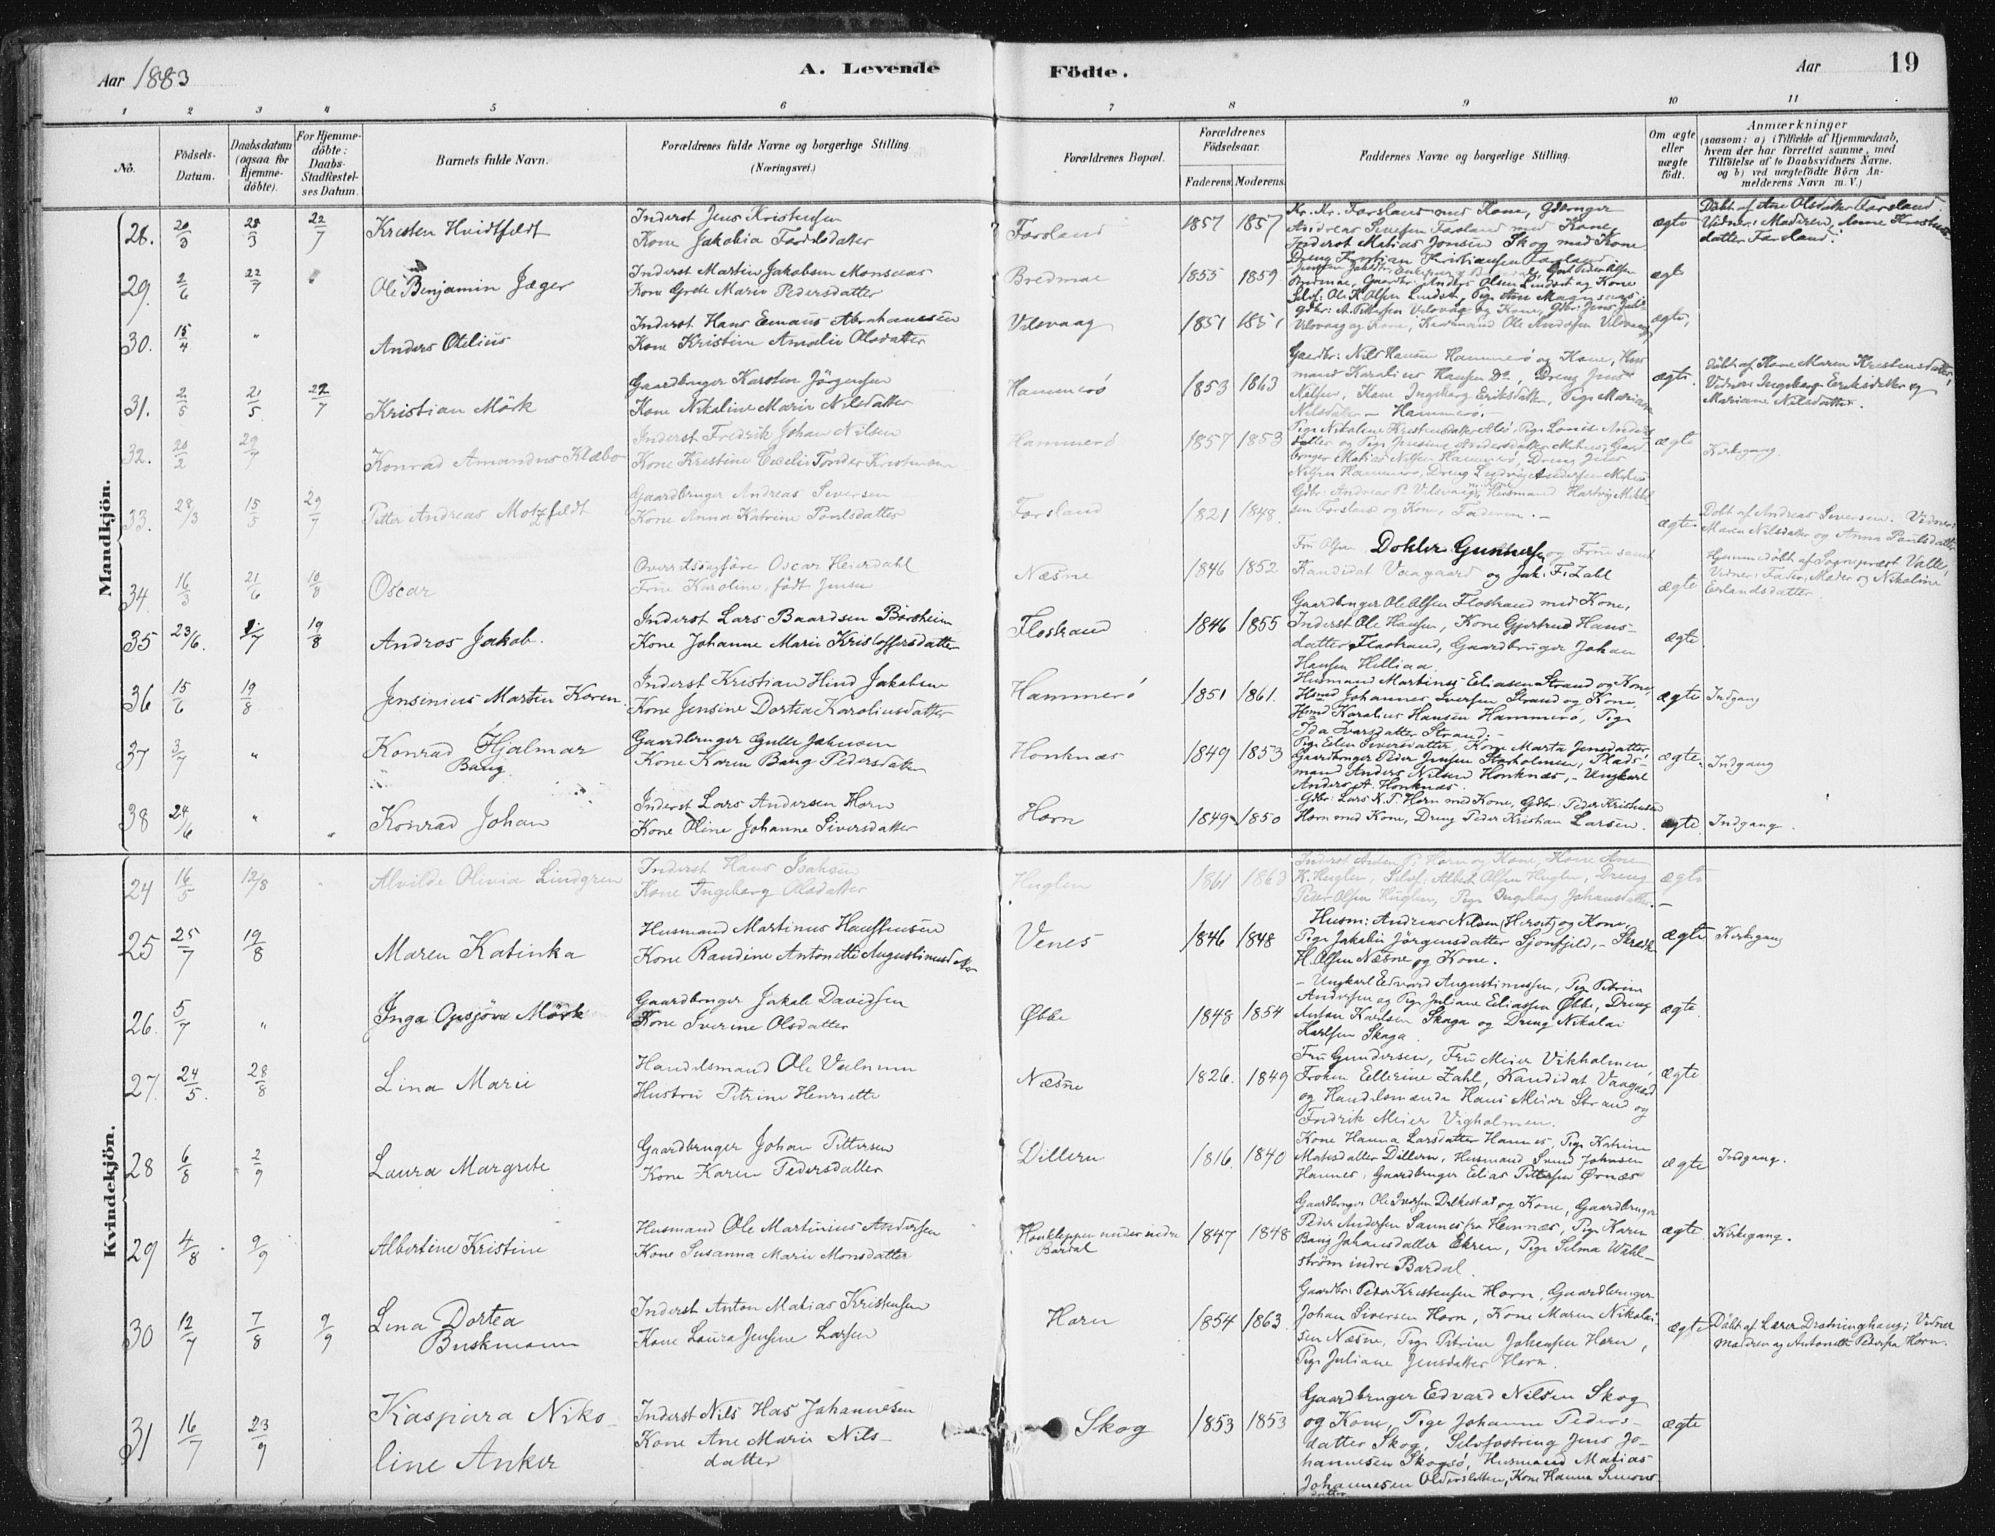 Aar 1883 A. Levende Födte. Aar 19
1 2 3 4 5 6 7 8 9 10 11
No. Födsels-Datum. Daabsdatum (ogsaa for Hjemme-döbte). For Hjemme-döbte: Daabs-Stadfæstel-ses Datum. Barnets fulde Navn. Forældrenes fulde Navne og borgerlige Stilling. (Næringsvei.) Forældrenes Bopæl. Forældrenes Födselsaar. Faderens. Moderens. Faddernes Navne og borgerlige Stilling. Om ægte eller uægte födt. Anmærkninger (saasom: a) i Tilfælde af Hjemmedaab, hvem der har forrettet samme, med Tilföielse af to Daabsvidners Navne, og b) ved uægtefödte Börn An-melderens Navn m. V.)
Mandkjön.
28. 20/3 28/3 22/7 Kresten Hvidtfeldt
Inderst Jens Kristensen
Kone Jakobia
Forsland 1857 1857
Andreas Forsland med Kone,
Inderst Matias Jonsen Skog med Kone
ægte
29. 2/6 22/7 Ole Benjamin Jæger
Inderst Martin Jakobsen Monsaas
Kone Grete Marie Pedersdatter
Bredmae 1855 1859
ægte
30. 15/4 " Anders Otelius
Inderst Hans Emaus Abrahamsen
Kone Kristine Amalie Olsdatter
Vilsvaag 1851 1851
ægte,
31. 2/5 21/5 22/7 Kristian Mörk
Gaardbruger Karsten Jörgensen
Kone Nikoline Marie Nilsdatter
Hammerö 1853 1863
Gaardbr: Nils Hansen Hammerö og Kone, Hus-
mand Karolius Hansen Do, Dreng Jens
Nelsen, Kone Ingeborg Eriksdatter, Pige Mariane
Nilsdatter - Hammerö. -
ægte.
Döbt af Kone Maren Krestensdatter,
Vidner: Ingeborg Eriksdatter og
Mariane Nilsdatter.
32. 20/2 29/7 Konrad Amandus Klæbo
Inderst Fredrik Johan Nilsen
Kone Kristine Tonder Kristensen
Hammerö 1857 1853
ægte Kirkegang.
33. 28/3 15/5 29/7 Petter Andreas Motzfeldt
Gaardbruger Andreas Siversen
Kone Anna Katrine Povlsdatter
Forsland 1821 1848.
sen Forsland og Kone, Faderen. -
ægte
Döbt af Andreas Siversen. Vidner:
Maren Nilsdatter og Anna Paulsdatter
34. 16/3 21/6 10/8 Oscar
Overretssagförer Oscar Heierdahl
Frue Karoline, född Jensen
Næsne 1846 1852
Fru Olsen Doktor Gundersen og Frue samt
Kandidat Vaagaard og Jak. F. Zahl
ægte
Hjemmedöbt af Sognepræst Valle,
Vidner: Fader, Moder og Nikoline
Erlandsdatter.
35 23/6. 1/7 19/8 Andros Jakob.
Inderst Lars Baardsen Börsheim
Kone Johanne Marie Kristoffersdatter
Flostrand 1846 1855
Gaardbruger Ole Olsen Flostrand med Kone,
Inderst Ole Hansen, Kone Gjertrud Hans-
datter Flostrand, Gaardbruger Johan
Hansen Helliaa.
ægte.
36 15/6 19/8 Jensinius Martin Koren.
Inderst Kristian Hind Jakobsen
Kone Jensine Dortea Karoliusdatter
Hammerö 1851 1861.
Husmand Martines Eliasen Strand og Kone,
Hmd Johannes Iversen Strand og Kone,
Hmd Karolius Hansen Hammerö, Pige
Ida Ivarsdatter Strand. -
ægte Indgang
37 3/7 " Konrad Hjalmar
Bang.
Gaardbruger Gulle Johnsen
Kone Karen Bang Pedersdatter
Honknæs 1849 1853
Pige Elen Siversdatter, Kone Marta Jensdatter,
Gaardbruger Peder Jensen Storholmen, Plads-
mand Anders Nilsen Honknæs, - Ungkarl
Anders A. Honknæs.
ægte. Indgang
38 24/6 " " Konrad Johan
Inderst Lars Andersen Horn
Kone Oline Johanne Siversdatter
Horn 1849 1850
Gdbr: Lars K. P. Horn med Kone, Gdbr: Peder Kristensen
Horn med Kone, Dreng Peder Kristian Larsen.
ægte. Indgang.
Kvindekjön.
24 16/5 12/8 Alvilde Olivia Lindgren
Inderst Hans Isaksen
Kone Ingeborg Olsdatter
Huglen 1861 1863
Inderst Anton P. Horn og Kone, Kone Ane
K. Huglen, Selvf: Albert Olsen Huglen, Dreng
Peder Olsen Huglen, Pige Ingeborg Johansdatter.
ægte
25 25/7 19/8 Maren Katinka
Husmand Martinus
Kone Randine Antonette Augustinusdatter
Venes 1846 1848
Husm: Andreas Nilsen (Hersot) og Kone,
Pige Jakobie Jörgensdatter Sjonfjeld, - Skræd.
H. Olsen Næsne og Kone.
ægte Kirkegang
26. 5/7 " Inga Mörk
Gaardbruger Jakob Davidsen
Kone Iverine Olsdatter
Øbbe 1848 1854
- Ungkarl Edvard Augustinussen, Pige Petrine
Andersen og Pige Juliane Eliassen Øbbe, Dreng
Anton Karlsen Skaga og Dreng Nikolai
Karlsen Skaga.
ægte.
27. 24/5. 28/8 Lina Marie
Handelsmand Ole
Hustru Petrine Henriette
Næsne 1826. 1849
Fru Gundersen, Fru Meier Vikholmen,
Fröken Ellerine Zahl, Kandidat Vaagaard
og Handelsmænda Hans Meier Strand og
Fredrik Meier Vigholmen.
ægte
28 6/8 2/9 Laura Margrete
Gaardbruger Johan Pettersen
Kone Karen Pedersdatter
Dillern 1816. 1840
Kone Hanna Larsdatter Hannes, Pige Katrine
Matisdatter Dillern, Husmand Svend Johnsen
Hannes, Gaardbruger Elias Pettersen Ørnæs
ægte Indgang.
29 4/8 9/9 Albertine Kristine
Husmand Ole Martinius Andersen
Kone Susanna Marie Monsdatter
Haukleppen under indre
Bardal
1847 1848
Gaardbruger Ole Iversen Dilkestad og Kone, Gaardbruger
Peder Andersen Sannes fra Hemnæs, Pige Karen
Bang Johansdatter Ekren, Pige Selma Wahl-
ström indre Bardal.
ægte. Kirkegang.
30 12/7 7/8 9/9 Lina Dortea
Buskmann
Inderst Anton Matias Kristensen
Kone Laura Jensine Larsen
Horn 1854 1863.
Gaardbr: Peter Kristensen Horn, Gaardbruger
Johan Siversen Horn, Kone Maren Nikolai-
sen Næsne, Pige Petrine Johansen Horn,
Pige Juliane Jensdatter Horn.
ægte
Döbt af Lærer Dratninghaug; Vidner
Moderen og Antonette Peders fra Horn.
31 16/7 23/9 Kaspara Niko-
line Anker
Inderst Nils Has Johannesen
Kone Ane Marie Nils-
datter
Skog 1853 1853
Gaardbruger Edvard Nilsen Skog
og Kone, Pige Johanne Peders-
datter Skog, Selvfostring Jens Jo-
hannesen Skogsö, Husmand Matias
Johannesen Oldersletten, Kone Hanna Simons-
datter
ægte